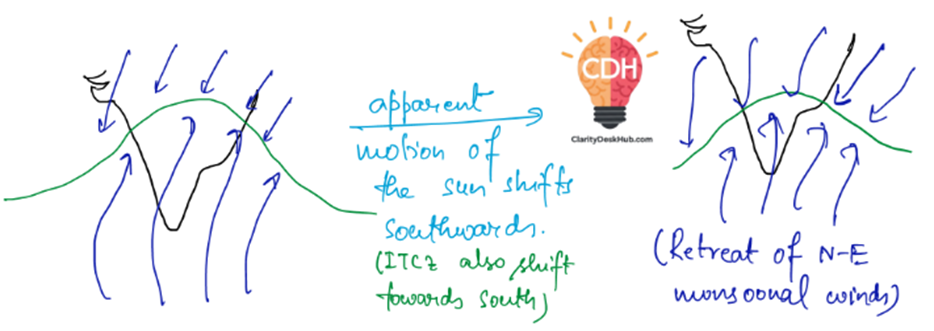 apparent
motion of
the sun shifts
southwards.
(ITCZ also shift
towards south)
CDH
ClarityDeskHub.com
(Retreat of N-E
monsoonal winds)